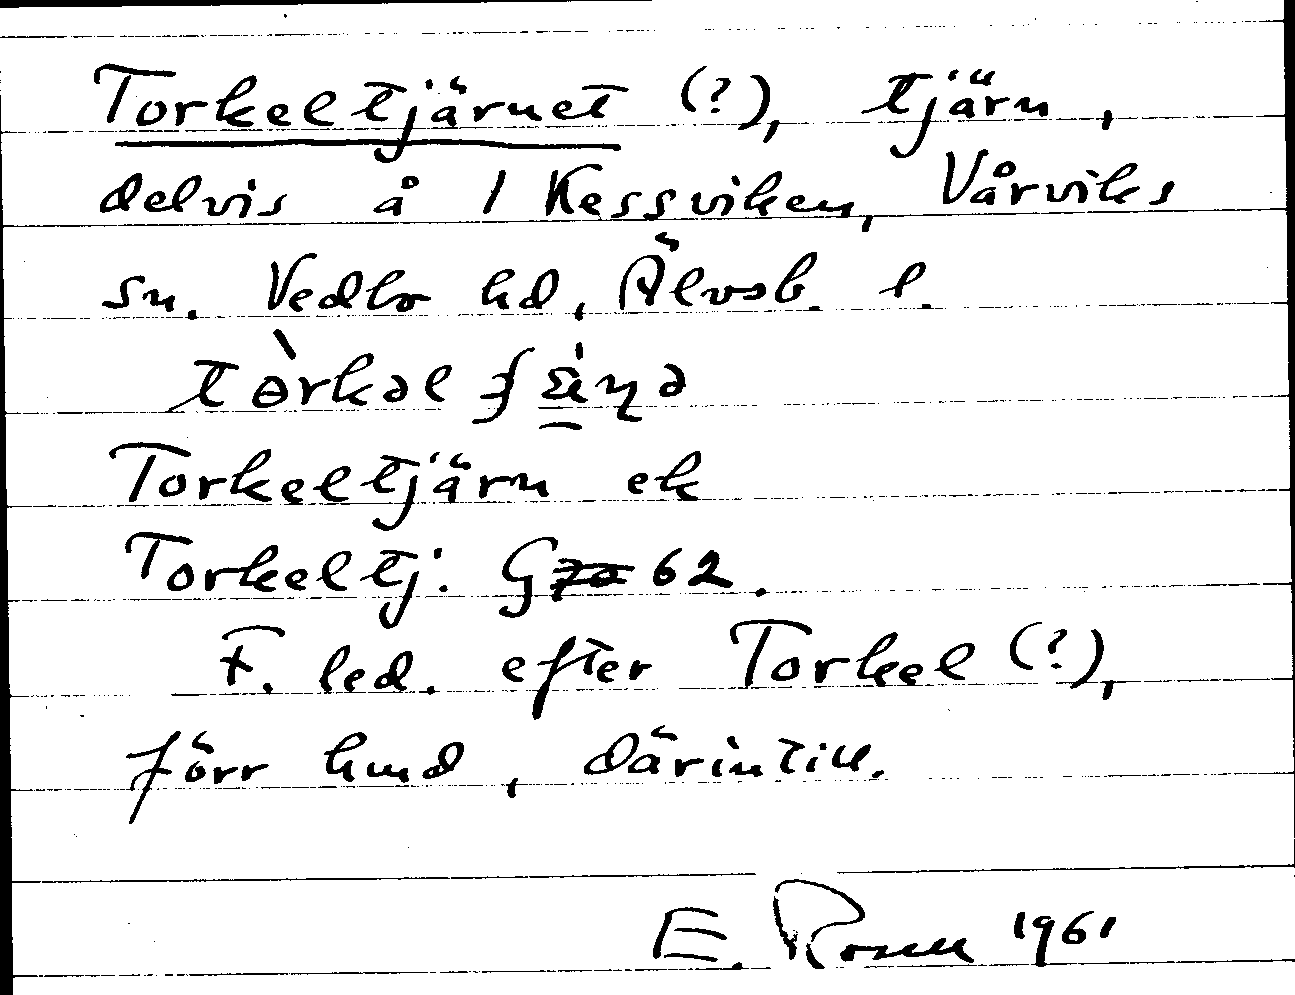 Torkeltjärnet (?), tjärn,
delvis å 1 Kessviken, Vårviks
sn. Vedbo hd, Älvsb. l.
Torkeltjärn ek
Torkeltj. G 62.
F. led. efter Torkel (?),
förr hmd, därintill.
E. Rosen 1961